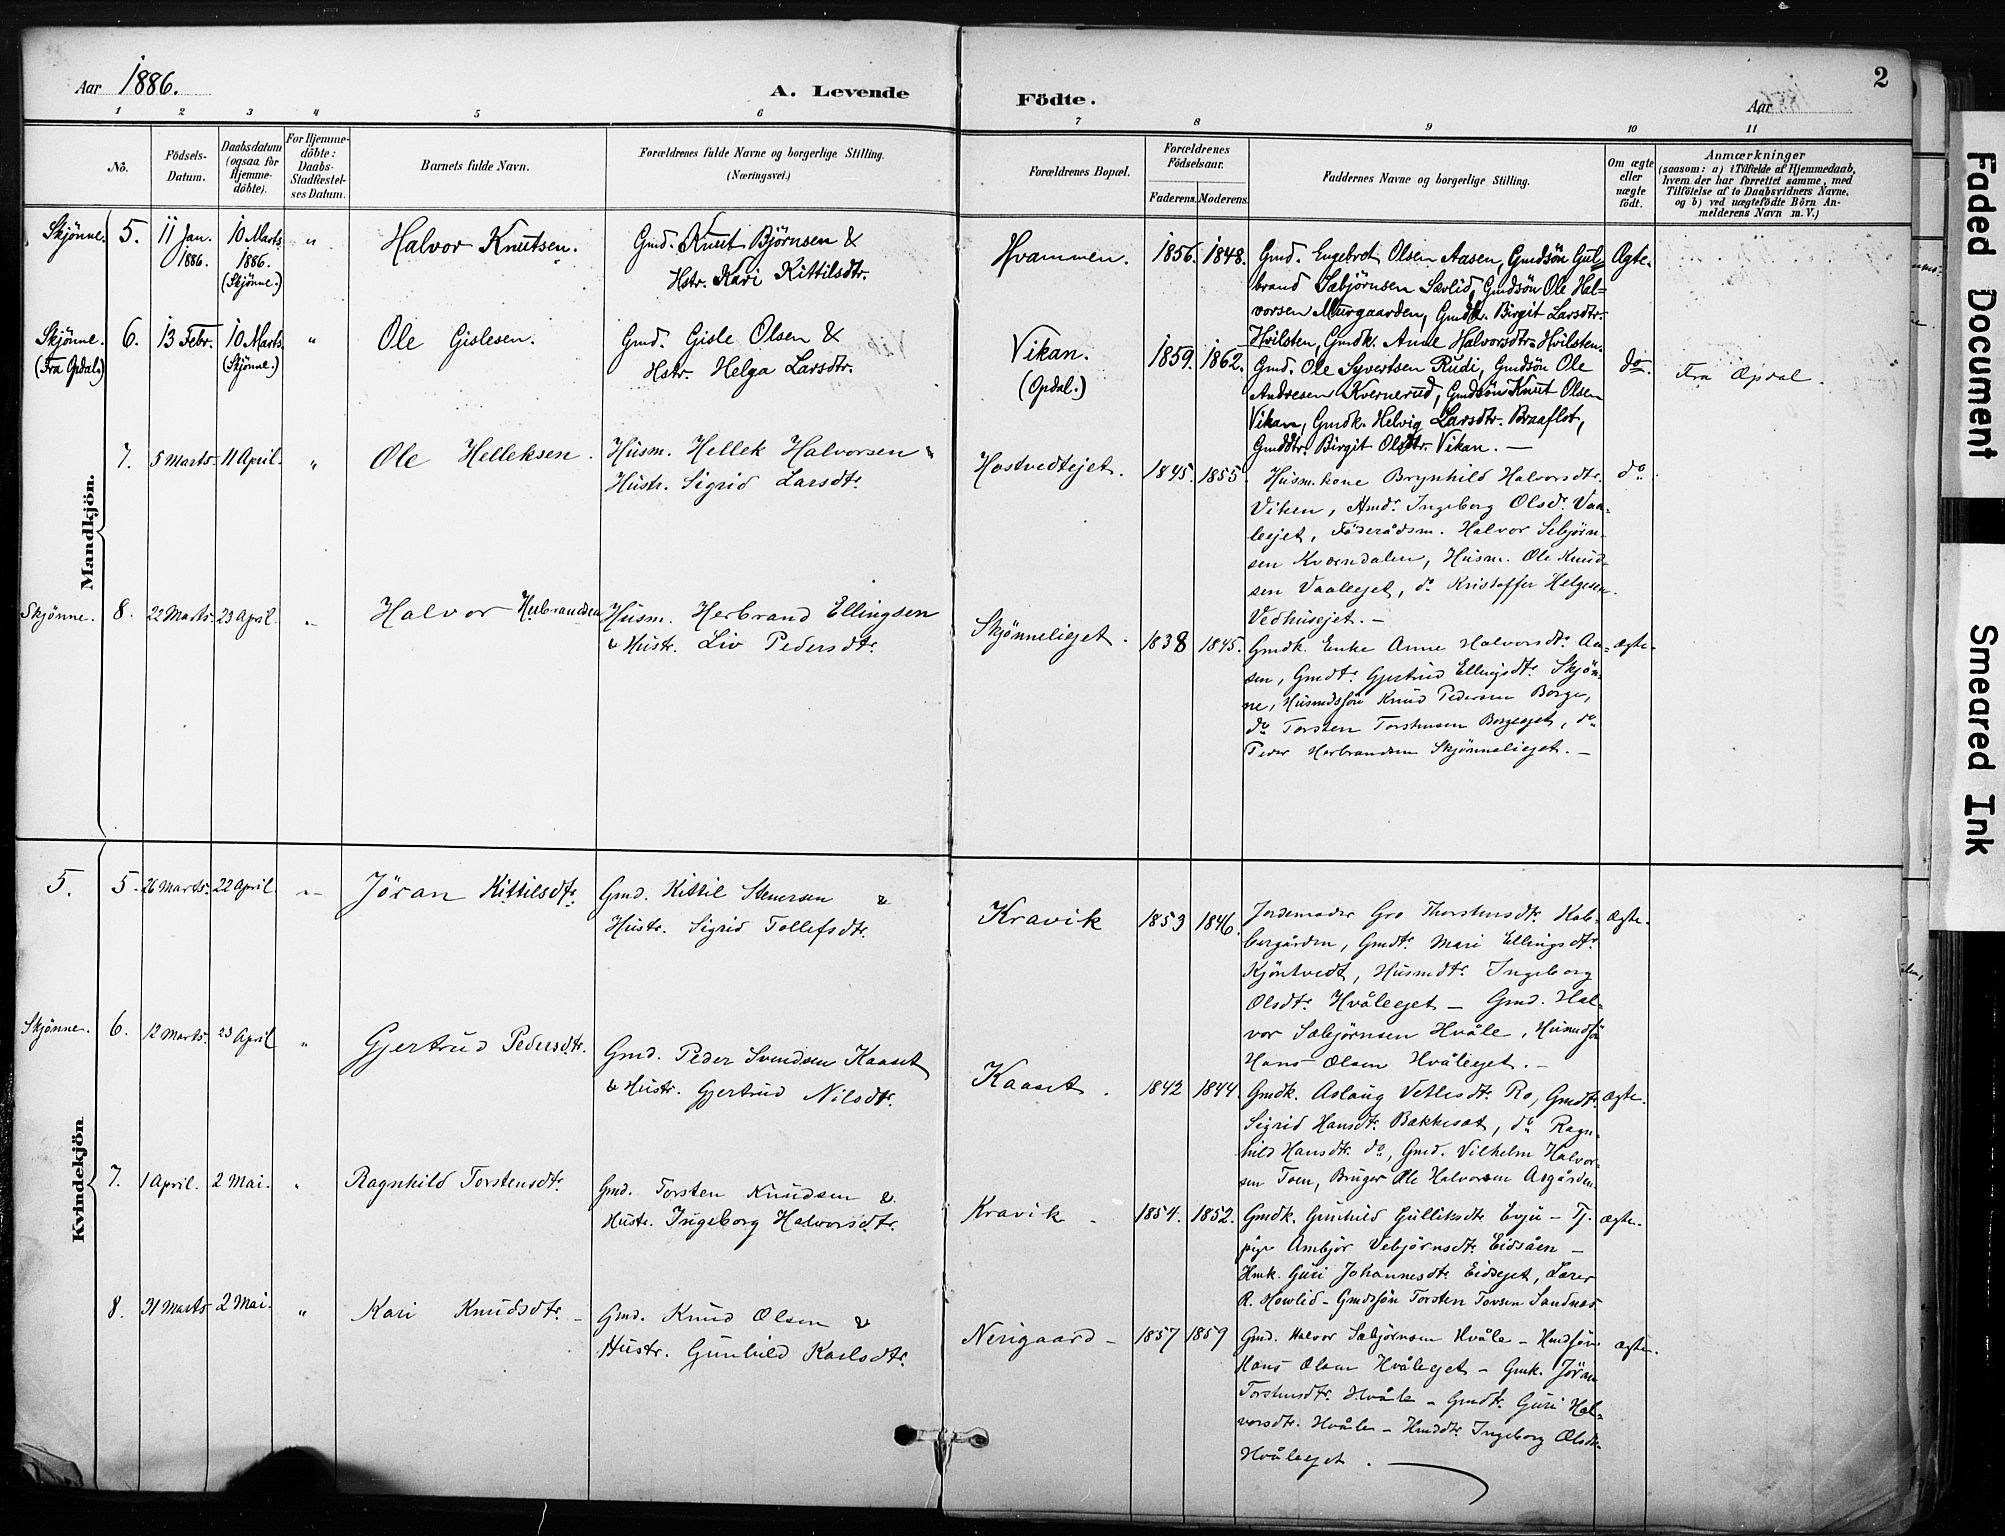 Aar 1886.
A. Levende
Födte.
Aar
2
1 2 3 4 5 6 7 8 9 10 11
No.
Födsels-
Datum.
Daabsdatum
(ogsaa for
Hjemme-
döbte).
For Hjemme-
döbte:
Daabs-
Stadfæstel-
ses Datum.
Barnets fulde Navn.
Forældrenes fulde Navne og borgerlige Stilling.
(Næringsvei.)
Forældrenes Bopæl.
Forældrenes
Födselsaar.
Faderens. Moderens.
Faddernes Navne og borgerlige Stilling.
Om ægte
eller
uægte
födt.
Anmærkninger
(saasom: a) i Tilfælde af Hjemmedaab,
hvem der har forrettet samme, med
Tilföielse af to Daabsvidners Navne,
og b) ved uægtefödte Börn An-
melderens Navn m. V.)
Mandkjön.
Skjönne. 5. 11 Jan. 1886. 10 Marts 1886. (Skjönne.) " Halvor Knutsen.
Gmd. Knut Björnsen &
Hstr. Kari Kittilsdtr.
Hvammen. 1856. 1848.
Gmd. Engebret Olsen Aasen, Gmdsön Gul=
brand Sæbjörnsen Sævlid, Gmdsön Ole Hal=
vorsen Murgaarden, Gmdk. Birgit Larsdtr.
Hvilsten, Gmdk. Anne Halvorsdtr. Hvilsten.
Ægte.
Skjönne. (Fra Opdal.) 6. 13 Febr. 10 Marts (Skjönne.) " Ole Gislesen.
Gmd. Gisle Olsen &
Hstr. Helga Larsdtr.
Vikan.
(Opdal.)
1859. 1862.
Gmd. Ole Syvertsen Rudi, Gmdsön Ole
Andresen Kvernerud, Gmdsön Knut Olsen
Vikan, Gmdk. Helvig Larsdtr. Braaflot,
Gmddtr. Birgit Olsdtr. Vikan. —
do.
Fra Opdal.
7. 5 Marts. 11 April. " Ole Helleksen.
Husm. Hellek Halvorsen &
Hustr. Sigrid Larsdtr.
Hostvedtejet. 1845. 1855.
Husm.kone Brynhild Halvorsdtr.
Viken, Gmdr. Ingeborg Olsdr. Vaa-
leejet, Föderådsm. Halvor Sebjörn-
sen Kværndalen, Husm. Ole Knud-
sen Vaaleejet, do. Kristoffer Helgesen
Vedhusejet. —
do
Skjönne. 8. 22 Marts. 23 April. " Halvor Herbrandsen
Husm. Herbrand Ellingsen
& Hustr. Liv Pedersdtr.
Skjönneliejet. 1838 1845.
Gmdk. Enke Anne Halvorsdtr. Aa-
sen, Gmdtr. Gjertrud Ellingsdtr. Skjön-
ne, Husmdsön Knud Pedersen Borge,
do. Torsten Torstensen Borgeejet, do.
Peder Herbrandsen Skjönneliejet. —
ægte.
Kvindekjön
5. 5. 26 Marts. 22 April. " Jöran Kittilsdtr.
Gmd. Kittil Stenersen &
Hustr. Sigrid Tollefsdtr.
Kravik 1853 1846.
Jordemoder Gro Thorstensdtr. Kob-
bergården, Gmdtr. Mari Ellingsdtr.
Kjöntvedt, Husmdtr. Ingeborg
Olsdtr. Hvåleejet — Gmd. Hal-
vor Sæbjörnsen Hvåle, Husmdsön
Hans Olsen Hvåleejet. —
ægte.
Skjönne. 6. 12 Marts. 23 April " Gjertrud Pedersdtr.
Gmd. Peder Svendsen Kaaset
& Hustr. Gjertrud Nilsdtr.
Kaaset. 1842 1844.
Gmdk. Aslaug Vetlesdtr. Ro, Gmdtr.
Sigrid Hansdtr. Bakkesæt, do. Ragn-
hild Hansdtr. do, Gmd. Vilhelm Halvor-
sen Toen, Bruger Ole Halvorsen Asgården
ægte.
7. 1 April. 2 Mai. " Ragnhild Torstensdtr.
Gmd. Torsten Knudsen &
Hustr. Ingeborg Halvorsdtr.
Kravik 1854. 1852.
Gmdk. Gunhild Gulliksdtr. Evju — Tj.
pige Ambjör Vebjörnsdtr. Eidsåen —
Hmk. Guri Johannesdtr. Eidsejet, Lærer
R. Howlid — Gmdsön Torsten Tovsen Sandnæs
ægte.
8. 31 Marts 2 Mai. " Kari Knudsdtr.
Gmd. Knud Olsen &
Hustr. Gunhild Karlsdtr.
Nerigaard — 1857 1859
Gmd. Halvor Sæbjörnsen Hvåle — Hmdsön
Hans Olsen Hvåleejet — Gmk. Jöran
Torstensdtr. Hvåle — Gmdtr. Guri Hal-
vorsdtr. Hvåle — Hmddtr. Ingeborg Olsdtr.
Hvåleejet.
ægte.
Faded Document
Smeared Ink